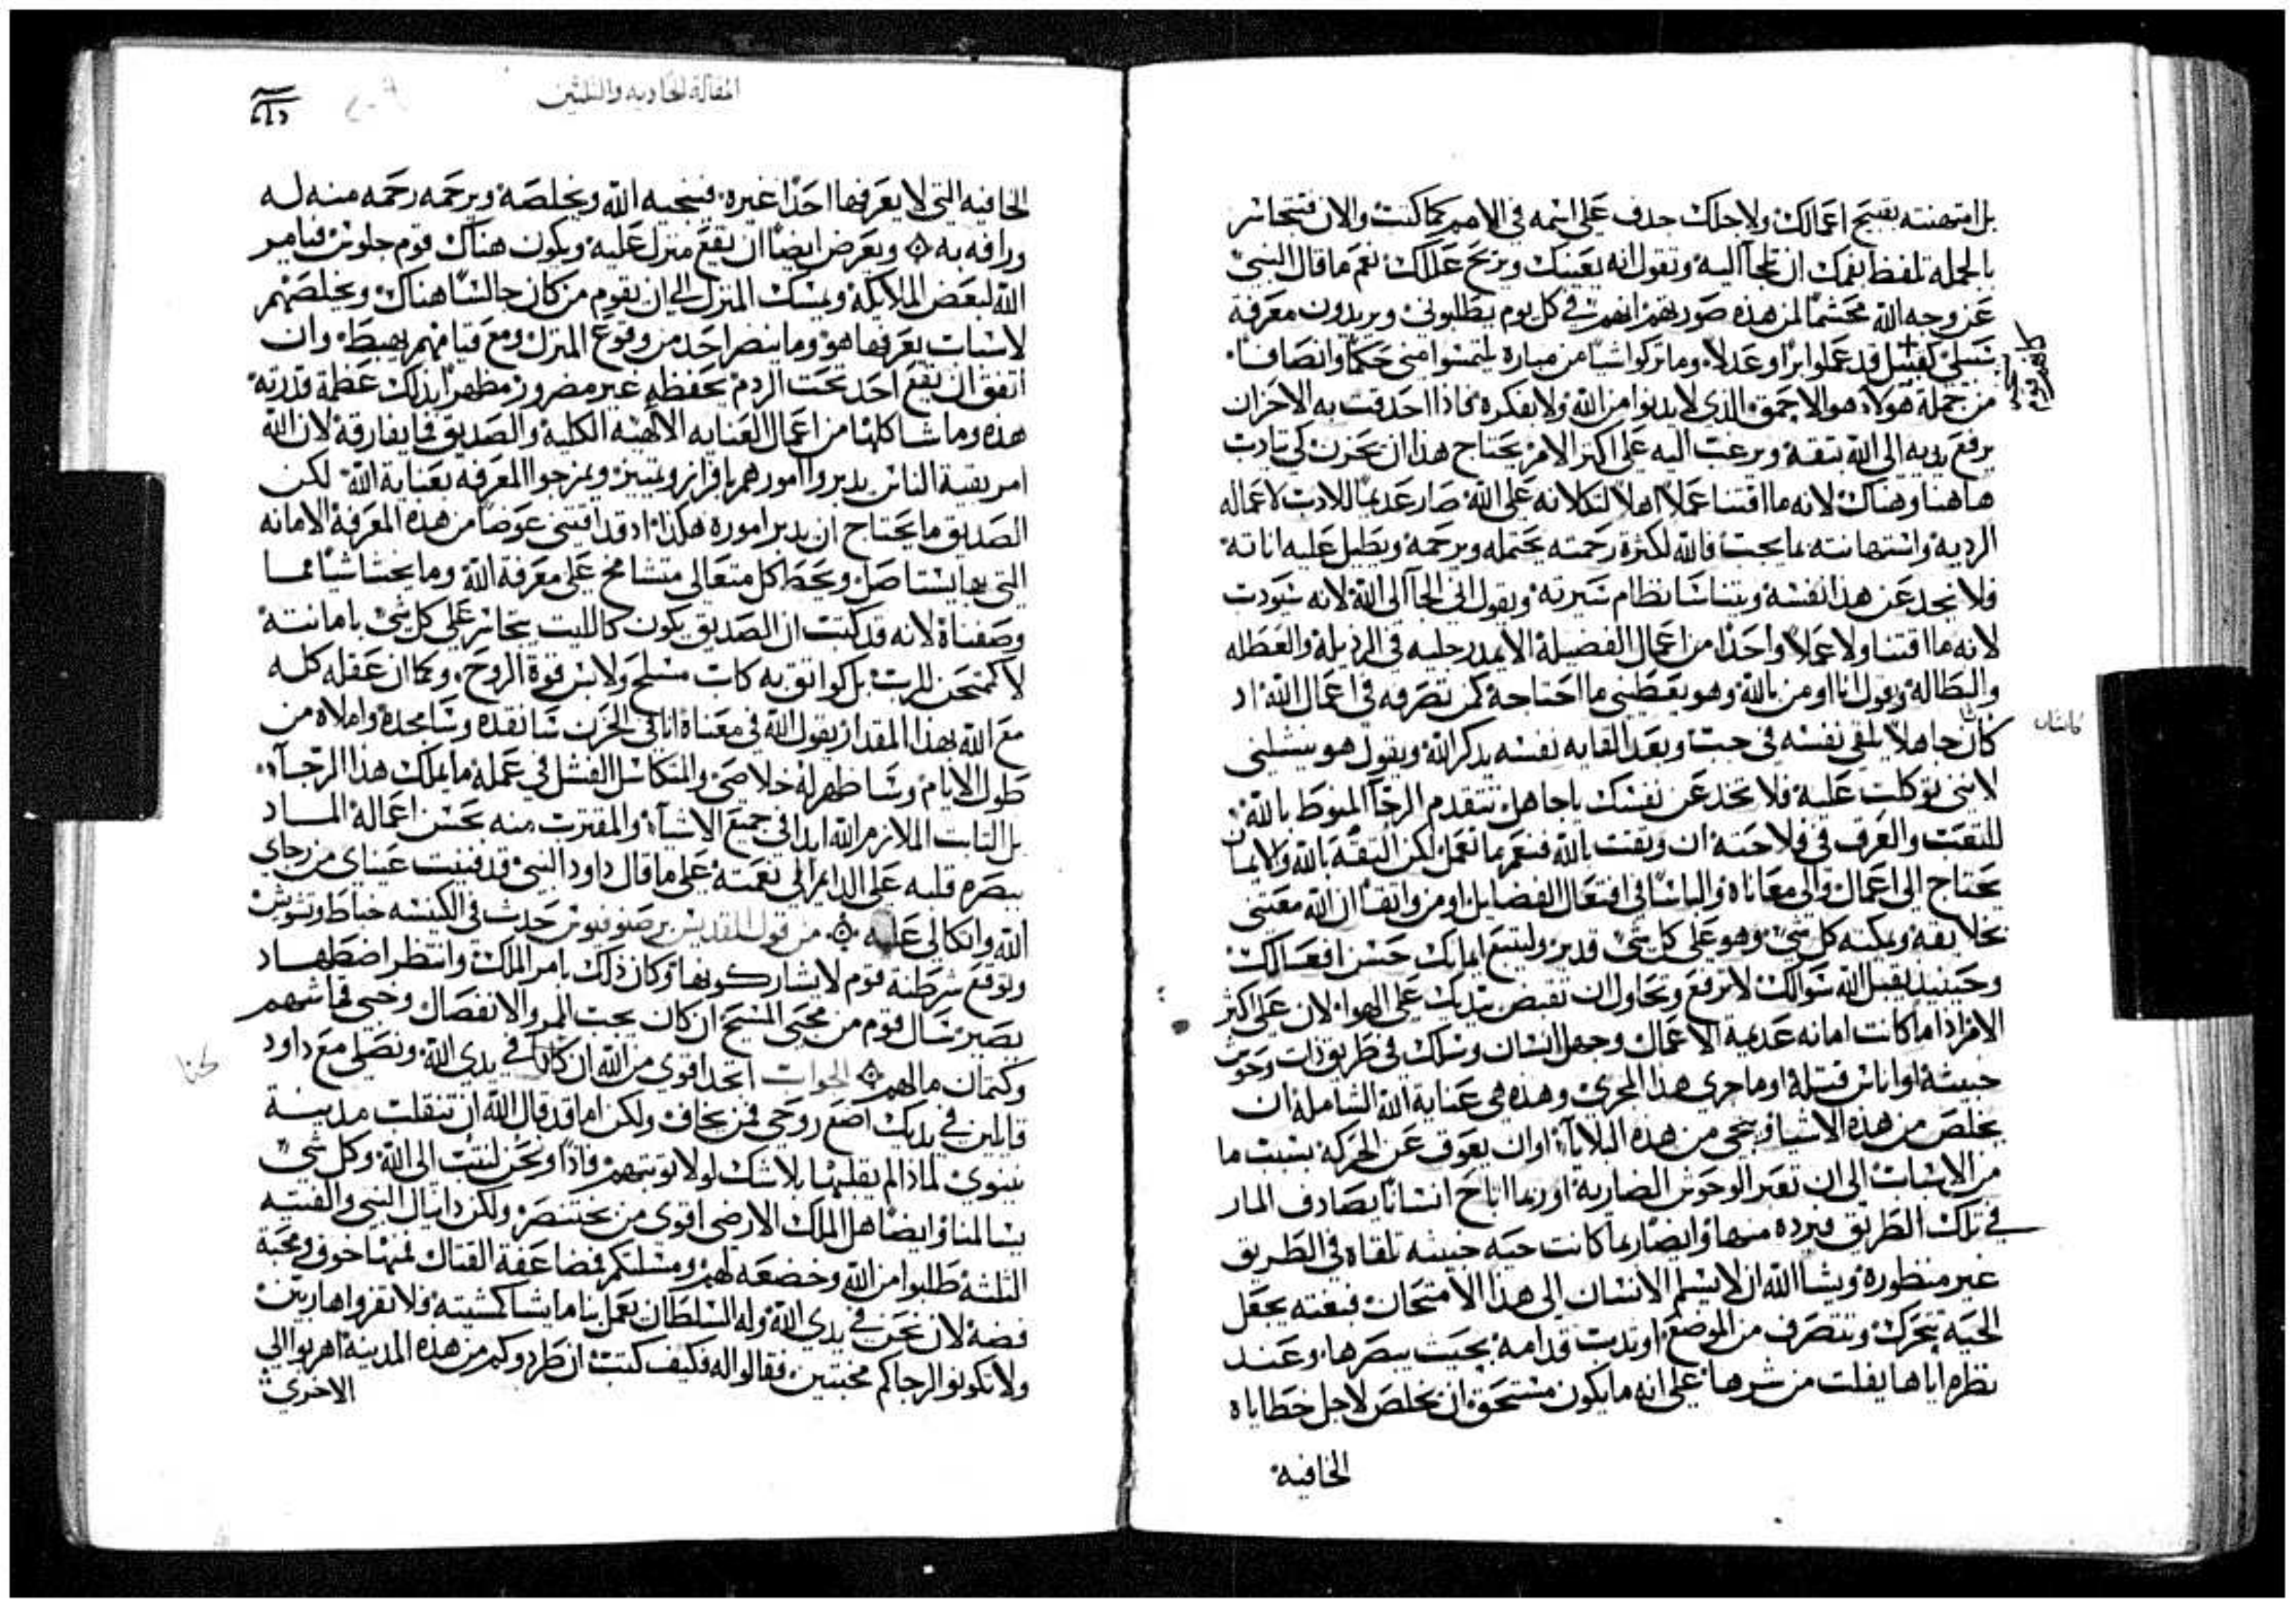 بل امتهنته بقبيح اعمالك ولاجلك جدف على اسمه في الامم كما كتب والان فتجاسر
بالجمله تلفظ بفمك ان تلجا اليه وتقول انه يعينك ويزيح عللك نعم ما قال النبي
عن وجه الله محتشما لمن هذه صورتهم انهم في كل يوم يطلبوني ويريدون معرفة
سبلي كقبيل قد عملوا برا وعدلا وما تركوا شيا من مباره يلتمسوا مني حكما وانصافا
من جملة هولاء هو الاحمق الذي لا يدنوا من الله ولا بفكره فاذا احدقت به الاحزان
يرفع يديه الى الله بثقة ويرغب اليه على اكثر الامر يحتاج هذا ان يحزن كي يتادب
هاهنا وهناك لانه ما اقتنا عملا اهلا لتكلانه على الله صار عديما للادب لاعماله
الرديه واستهانته بما يجب فالله لكثرة رحمته يحتمله ويرحمه ويطيل عليه اناته
فلا يخدعن هذا نفسه ويتناسا نظام سيرته ويقول اني الجا الى الله لانه سيودب
لانه ما اقتنا ولا عملا واحدا من اعمال الفضيلة الا يمد رجليه في الرذيلة والعطله
والبطالة ويقول انا اومن بالله وهو يعطيني ما احتاجه كمن تصرفه في اعمال الله اد
كان جاهلا يلقي نفسه في جب وبعد القايه نفسه يذكر الله ويقول هو ينشلني
لانني توكلت عليه فلا تخدعن نفسك ياجاهل تتقدم الرجا المنوط بالله
للتعب والعرق في فلاحته ان وثقت بالله فنعم ما تعمل لكن الثقة بالله والايمان
يحتاج الى اعمال والى معاناه والباسا في افتعال الفضايل اومن واتقا ان الله معتني
بخلايقه ويمكنه كل شي وهو على كل شي قدير وليتبع ايمانك حسن افعالك
وحينيد يقبل الله سوالك لا ترفع وتحاول ان تقبض بيديك على الهوا لان على اكثر
الامر اذا ما كانت امانه عديمة الاعمال وجهل انسان وسلك في طريق ذات وحوش
خبيثة او اناس قتلة او ما جرى هذا المجرى وهذه هي عناية الله الشاملة ان
يخلص من هذه الاشيا وينجي من هذه البلايا او ان يعوق عن الحركة بسبب ما
من الاسباب الى ان تعبر الوحوش الضارية او ربما اتاح انسانا يصادف المار
في تلك الطريق فيرده منها وايضا ربما كانت حيه خبيثه تلقاه في الطريق
غير منظورة ويشا الله ان لا يسلم الانسان الى هذا الامتحان فبغته يجعل
الحيه تتحرك وتنصرف من الموضع او تدب قدامه بحيث يبصرها وعند
نظره اياها يفلت من شرها على انه ما يكون مستحق ان يخلص لاجل خطاياه
الخافيه
المقالة الحاديه والثلثين
الخافيه التي لا يعرفها احدا غيره فينجيه الله ويخلصه ويرحمه رحمه منه له
ورافه به ويعرض ايضا ان يقع منزل عليه ويكون هناك قوم جلوس فيامر
الله لبعض الملايكة ويمسك المنزل الى ان يقوم من كان جالسا هناك ويخلصهم
لاسباب يعرفها هو وما ينضر احد من وقوع المنزل ومع قيامهم يهبط وان
اتفق ان يقع احد تحت الردم يحفظه غير مضرور مظهرا بذلك عظمة قدرته
هذه وما شاكلها من اعمال العنايه الالهيه الكلية والصديق فما يفارقه لان الله
امر بقية الناس يدبروا امورهم بافراز وتمييز ويمزجوا المعرفه بعناية الله لكن
الصديق ما يحتاج ان يدبر اموره هكذا اد قد اقتنى عوضا من هذه المعرفة الامانه
التي بها يستاصل ويحط كل متعالي متشامخ على معرفة الله وما يخشا شيا مما
وصفناه لانه قد كتب ان الصديق يكون كالليث يتجاسر على كل شي بامانته
لا كممتحن للرب بل كواثق به كات متسلح ولابس قوة الروح وكما ان عقله كله
مع الله بهذا المقدار يقول الله في معناه انا في الحزن سانقذه وسامجده واملاه من
طول الايام وساظهر له خلاصي والمتكاسل الفشل في عمله ما يملك هذا الرجا
بل الثابت الملازم الله ابدا في جميع الاشيا والمقترب منه بحسن اعماله الماد
ببصره قلبه على الدايم الى نعمته على ما قال داود النبي قد فنيت عيناي من رجاي
الله واتكالي عليه من قول القديس برصنوفيوس حدث في الكنيسه خباط وتشويش
وتوقع شرطنة قوم لا يشاركونها وكان ذلك بامر الملك وانتظر اضطهاد
يصير سال قوم من محبي المسيح ان كان يجب المر والانفصال وخبي قماشهم
وكتمان مالهم الجواب اتجد اقوى من الله ان كنا في يدي الله ونصلي مع داود
قايلين في يديك اضع روحي فمن يخاف ولكن اما قد قال الله ان تنقلب مدينة
نينوى لماذا لم يقلبها بلا شك لولا توبتهم فاذا ونحن لنتب الى الله وكل شي
يسالمنا وايضا هل الملك الارضي اقوى من بختنصر ولكن دانيال النبي والفتيه
الثلثة طلبوا من الله وخضعه لهم ومسلتكم فضاعفة القتاك ثمنها خوف ومحبة
فضة لان نحن في يدي الله وله السلطان يعمل بنا ما يشا كمشيته فلا تفزوا هاربين
ولا تكونوا لرجاكم مخيبين فقالوا له فكيف كتب ان طردوكم من هذه المدينة اهربوا الى
الاخرى